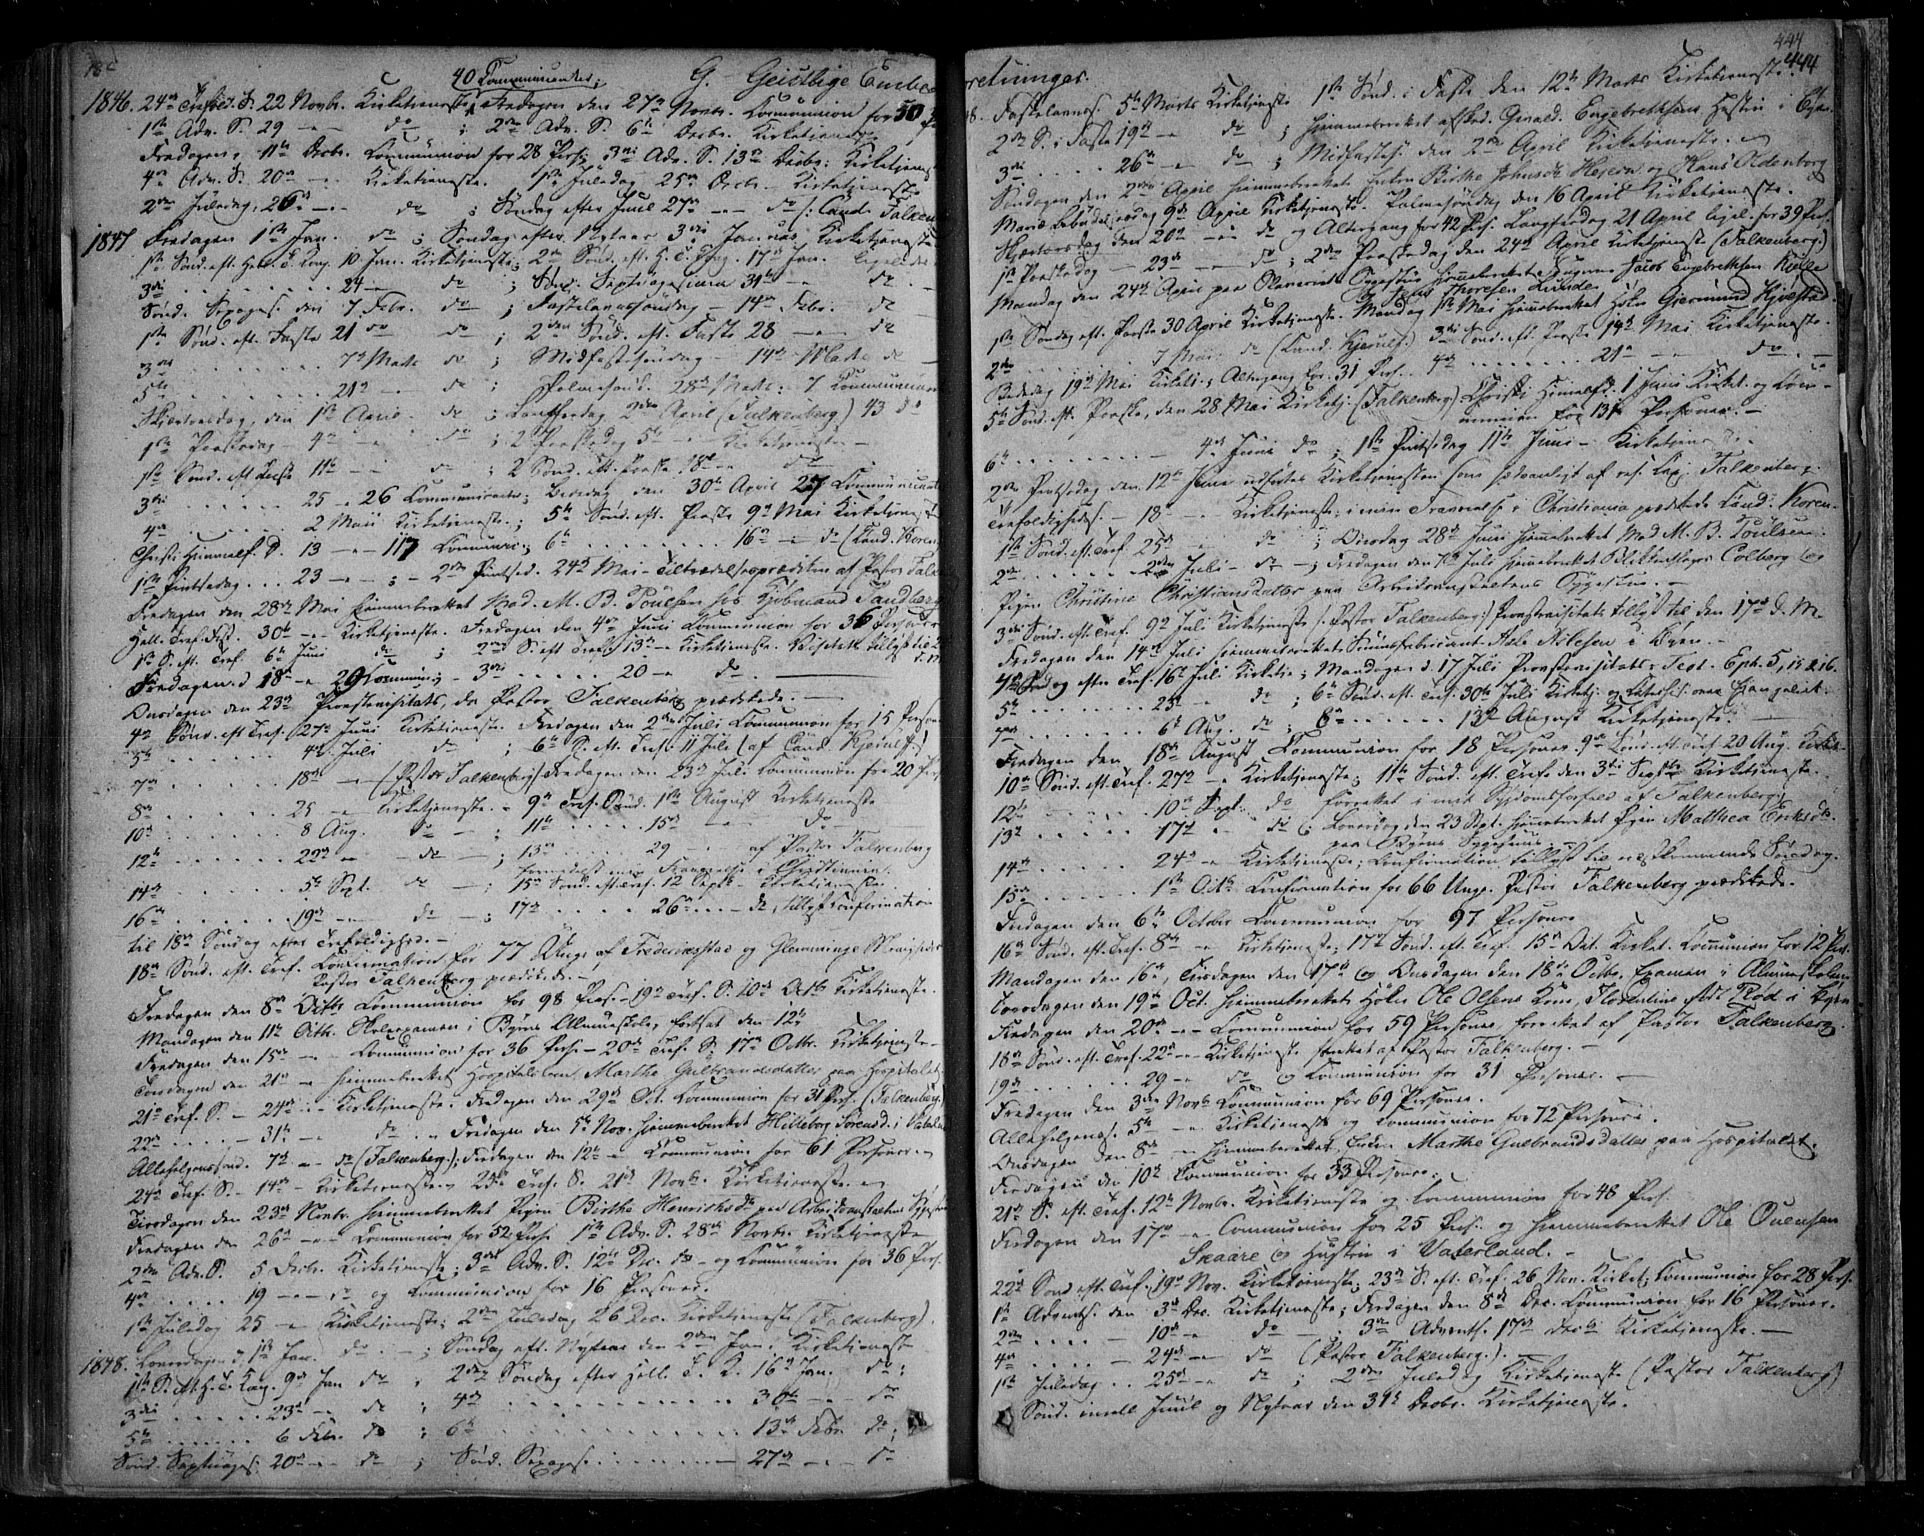 40 Communicanter;
G. Geistlige Embeds
1846. 24de Trefold. S. 22 Novbr. Kirketjeneste; Fredagen den 27de Novbr. Communion for 50
1ste Adv. S. 29 — do ; 2den Adv. S. 6te Decbr. Kirketjeneste
Fredagen, 11te Decbr. Communion for 28 Pers; 3die Adv. S. 13de Decbr. Kirketjeneste
4de Adv. S. 20de — Kirketjeneste. 1ste Juledag 25de Decbr. Kirketjeneste
2den Juledag, 26de — do ; Søndag efter Juul 27de — do (: Cand. Falken
1847 Fredagen 1ste Jan. do ; Søndag efter Nytaar 3die Januar Kirketjeneste
1ste Sønd. eft. Hell. 3 Kong. 10 Jan. Kirketjeneste; 2den Sønd. eft. H. 3 Kong. 17de Jan. ligeledes
3die . . . . . 24 — do ; Sønd. Septuagesima 31te — do —
Sønd. Sexages. den 7 Febr. do ; Fastelavnssøndag — 14de Febr. do —
1ste Sønd. eft. Faste 21de do ; 2den Sønd. eft. Faste 28 — do
3die . . . . . 7de Marts do ; Midfastesøndag — 14de Marts do —
5te . . . . . 21de — do ; Palmesønd. 28de Marts: 7 Communicanter
Skjærtorsdag, den 1ste April — do ; Langfredag 2den April (Falkenberg) 43 do
1ste Paaskedag — 4de — do ; 2 Paaskedag 5te — Kirketjeneste —
1ste Sønd. eft. Paaske 11te — do ; 2 Sønd. eft. Paaske 18de — do
3die . . . . . 25 — 26 Communicanter; Bededag, den 30te April 27 Communicanter
4de . . . . . 2 Maii Kirketjeneste; 5te Sønd. eft. Paaske 9de Mai Kirketjeneste
Christi Himmelf. D. 13 — 117 Communic; 6te . . . . . 16de — do (Cand. Koren
1ste Pintsedag . . . 23 — ; — 2den Pintsed. 24de Mai — Tiltrædelsesprædiken af Pastor Falk
Fredagen den 28de Mai hjemmeberettet Mad. M. B. Poulsen hos Kjøbmand Sandberg
Hell. Tref. Fest. 30te — Kirketjeneste. Fredagen den 4de Juni Communion for 36 Personer
1ste S. eft. Tref. 6te Juni do ; 2den S. eft. Tref. 13de — Kirketjeneste. Visitats tillyst til 2
Fredagen d. 18de — 29 Commun; — 3die . . . . . 20 — do —
Onsdagen den 23de Provstevisitats, da Pastor Falkenberg prædikede. —
4de Sønd. eft. Tref. 27de Juni Kirketjeneste. Fredagen den 2den Juli Communion for 15 Person
5te . . . . . 4de Juli do ; 6te S. eft. Tref. 11 Juli (af Cand. Kjerulf)
7de . . . . . 18de — (Pastor Falkenberg) Fredagen den 23de Juli Communion for 20 Pers
8de . . . . . 25 — Kirketjeneste. — 9de Tref. Sønd. 1ste August Kirketjeneste
10de . . . . . 8 Aug. do — ; 11te . . . . . 15de — do
12te . . . . . 22de — do — ; 13de . . . . . 29 — af Pastor Falkenberg
formedelst min Fraværelse i Christiania.
14de . . . . . 5te Sept. do — ; 15de Sønd. eft. Tref. 12 Sept. Kirketjeneste.
16de . . . . . 19de — do — ; 17de . . . . . 26de . . . — do, tillyst Confirmation
til 18de Søndag efter Trefoldighed. —
18de Sønd. eft. Tref. Confirmation for 77 Unge af Frederiksstad og Glemminge Menigheder
Pastor Falkenberg prædikede. —
Fredagen den 8de Octbr. Communion for 98 Pers. — 19de Tref. S. 10de Octbr. Kirketjeneste.
Mandagen den 11te Octbr. Skoleexamen i Byens Almueskole, fortsat den 12te
Fredagen den 15de — Communion for 36 Pers. — 20de Tref. S. 17de Octbr. Kirketjeneste —
Torsdagen den 21de — hjemmeberettet Hospitalslem Marthe Gulbrandsdatter paa Hospitalet
21de Tref. S. — 24de — Kirketjeneste. Fredagen den 29de Oct. Communion for 31 Pers. (Falkenberg.
22de . . . . — 31te — do . „ Fredagen den 5te Nov. hjemmeberettet Hilleborg Sørensd. i Vaterland
Allehelgenssønd. 7de — do (Falkenberg.); Fredagen den 12te — Communion for 61 Personer
24de Tref. S. — 14de — Kirketjeneste. 25de Tref. S. 21de Novbr. Kirketjeneste. —
Tirsdagen den 23de Novbr. hjemmeberettet Pigen Birthe Henrichsdr. ved Arbeidsanstaltens Sygestue
Fredagen den 26de — Communion for 52 Pers. 1ste Adv. S. 28de Novbr. Kirketjeneste
2den Adv. S. 5 Decbr. Kirketjeneste; 3die Adv. S. 12te Dec. do — og Communion for 36 Pers.
4de . . . . . 19 — do og Communion for 16 Personer.
1ste Juledag 25 — Kirketjeneste; 2den Juledag 26 Dec. Kirketjeneste (Falkenberg).
1848. Løverdagen d. 1ste Jan. do — ; Søndag eft. Nytaar den 2den Jan. Kirketjeneste
1ste S. eft. H. 3 Kong. 9de Jan do ; 2den Søndag efter Hell. 3 K. 16de Jan. do ;
3die . . . . . 23de — do ; 4de . . . . . 30te — do
5te . . . . . 6 Febr. do ; 6te . . . . . 13de Febr. do ;
Sønd. Septuages. 20de — do ; Sønd. Sexages. . . . . — 27de — do
444
444
retninger.
48. Fastelavnss. 5te Marts Kirketjeneste 1ste Sønd. i Faste den 12te Marts Kirketjeneste.
2den S. i Faste 19de — do ; hjemmeberettet afsked. Gevald. Engebrethsens Hustru i Byen.
3die . . . . . 26de — do ; Midfastes. den 2den April Kirketjeneste. —
Søndagen den 2den April hjemmeberettet Enken Birthe Johnsdr. Hejern og Hans Oldenborg
Mariæ Bebudelsesdag 9de April Kirketjeneste. Palmesøndag den 16 April Kirketjeneste.
Skjærtorsdag den 20de — do og Altergang for 42 Pers. Langfredag 21 April ligel. for 39 Pers.
1ste Paaskedag — 23de — do ; 2den Paaskedag den 24de April Kirketjeneste (Falkenberg.)
Mandag den 24de April paa Slaveriets Sygestue hjemmeberettet Fangerne Jacob Engebrethsen Kjølle
Thoresen Lunde
1ste Søndag eft. Paaske 30 April Kirketjeneste. Mandag 1ste Mai hjemmeberettet Høker Gjermund Hjelstad.
2den . . . . . 7 Mai do (Cand. Kjerulf.) 3die Sønd. eft. Paaske 14de Mai Kirketjeneste.
Bededag 19de Mai Kirketj.; Altergang for 31 Pers. 4de . . . . . 21de — do —
5te Sønd. eft. Paaske, den 28 Mai Kirketj. (Falkenberg.) Christi Himmelfd. 1 Juni Kirket. og Com-
munion for 131 Personer. —
6te . . . . . — 4de Juni do ; 1ste Pintsedag 11te Juni — Kirketjeneste. —
2den Pintsedag den 12te Juni udførtes Kirketjenesten som sædvanligt af res. Cap. Falkenberg.
Trefoldighedss. — 18 — Kirketjeneste; i min Fraværelse i Christiania prædikede Cand. Koren.
1ste Sønd. eft. Tref. 25de — do ; Onsdag 28de Juni hjemmeberettet Mad. M. B. Poulsen.
2den . . . . . 2den Juli — do — ; Fredagen den 7de Juli hjemmeberettet Blikkenslager Colberg og
Pigen Christine Christiansdatter paa Arbeidsanstaltens Sygestue. —
3die Sønd. eft. Tref. 9de Juli Kirketjeneste (: Pastor Falkenberg:) Provstevisitats tillyst til den 17de d. M.
Fredagen den 14de Juli hjemmeberettet Nilsen i Byen. —
4de Søndag efter Tref. 16de Juli Kirketje.; Mandagen d. 17 Juli Provstevisitats; Text. Eph. 5, 15 & 16.
5te . . . . . 23de — do ; 6te Sønd. eft. Tref. 30te Juli Kirketj. og Katechis. over Evangeliet.
7de . . . . . 6te Aug. do ; 8de . . . . . 13de August Kirketjeneste. —
Fredagen den 18de August Communion for 18 Personer. 9de Sønd. eft. Tref. 20 Aug. Kirke-
10de Sønd. eft. Tref. 27de — Kirketjeneste; 11te Sønd. eft. Tref. den 3die Septbr. Kirketjeneste.
12te . . . . . 10de Sept. do forrettet i mit Sygdomsforfald af Falkenberg;
13de . . . . . 17de — do ; Løverdag den 23 Sept. hjemmeberettet Pigen Matthea Eriksdr.
paa Byens Sygehuus.
14de . . . . . 24de — Kirketjeneste; Confirmation tillyst til næstkommende Søndag.
15de . . . . . 1ste Octbr. Confirmation for 66 Unge. Pastor Falkenberg prædikede.
Fredagen den 6te October Communion for 97 Personer
16de Sønd. eft. Tref. 8de — Kirketjeneste; 17de Sønd. eft. Tref. 15de Oct. Kirket. Communion for 12 Pers.
Mandagen den 16de, Tirsdagen den 17de og Onsdagen den 18de Octbr. Examen i Almueskolen
Torsdagen den 19de Oct. hjemmeberettet Høker Ole Olsens Kone, Florentine født Rød i Byen
Fredagen den 20de — Communion for 59 Personer forrettet af Pastor Falkenberg.
18de Sønd. eft. Tref. 22de — Kirketjeneste forrettet af Pastor Falkenberg. —
19de . . . . . 29 — do og Communion for 31 Personer. —
Fredagen den 3die Novbr. Communion for 69 Personer.
Allehelgenss. 5te — Kirketjeneste og Communion for 72 Personer.
Onsdagen den 8de — hjemmeberettet Enken Marthe Gulbrandsdatter paa Hospitalet.
Fredagen den 10de Communion for 33 Personer.
21de S. eft. Tref. 12te Novbr. Kirketjeneste og Communion for 48 Pers.
Fredagen den 17de — Communion for 25 Pers. og hjemmeberettet Ole Ouensen
Skaare og Hustru i Vaterland. —
22de Sønd. eft. Tref. 19de Nov. Kirketjeneste; 23de S. eft. Tref. 26 Nov. Kirket; Communion for 28 Pers.
1ste Adventss. den 3die Dec. Kirketjeneste; Fredagen den 8de Dec. Communion for 16 Personer.
2den . . . . — 10de — do — ; 3die Adventss. 17de Decbr. Kirketjeneste. —
4de . . . . — 24de — do (Pastor Falkenberg.). —
1ste Juledag . . 25de — do ; 2den Juledag Kirketjeneste (Pastor Falkenberg)
Sønd. imell. Juul og Nytaar den 31te Decbr. Kirketjeneste.